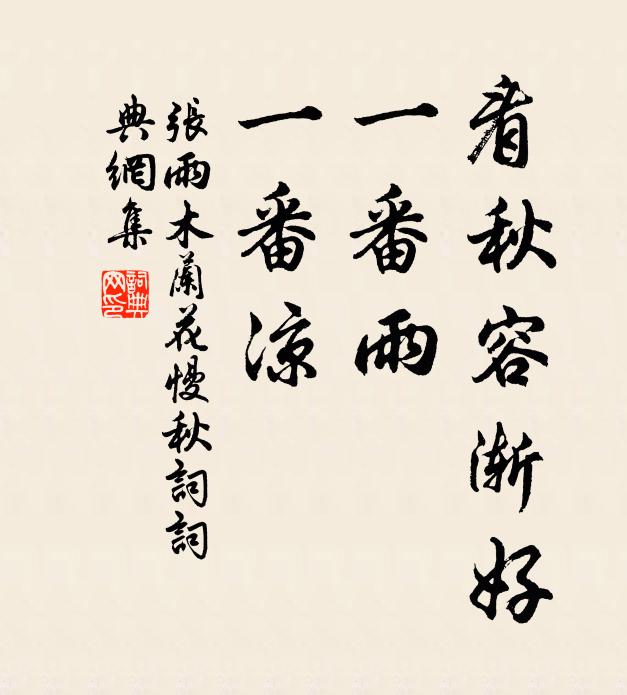 看秋容渐好
一番雨
一番凉
張雨木蘭花慢秋詞詞
典網集
詞典網印